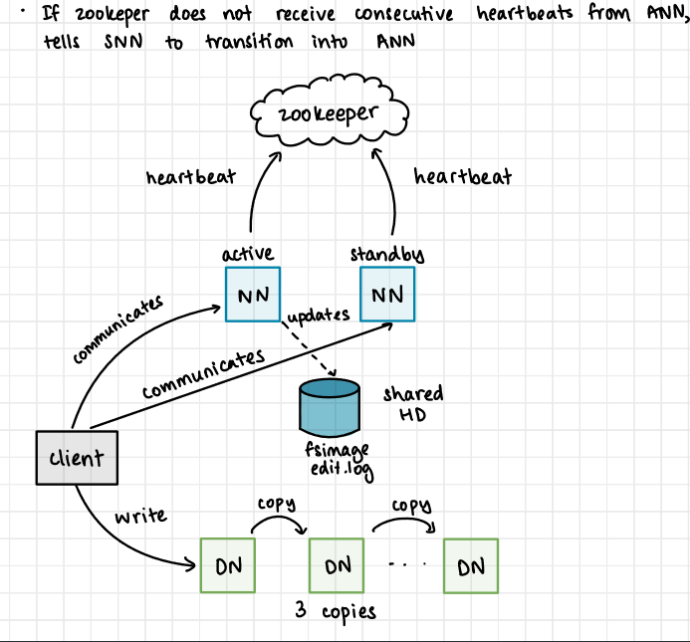 · If zookeeper does not receive consecutive heartbeats from ANN,
tells SNN to transition into ANN
zookeeper
heartbeat
heartbeat
active
standby
NN
NN
communicates
updates
communicates
shared
HD
fsimage
edit.log
client
write
copy
copy
DN
DN
...
DN
3 copies